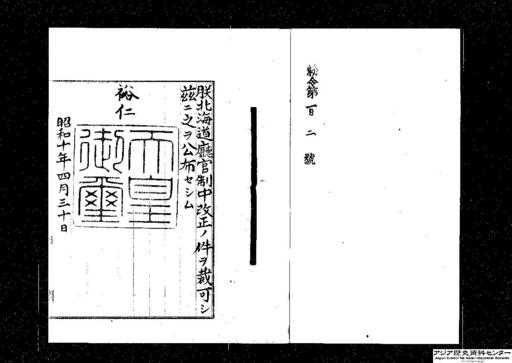 勅令第百二號
朕北海道廳官制中改正ノ件ヲ裁可シ
茲ニ之ヲ公布セシム
裕仁
天皇
御璽
昭和十年四月三十日
アジア歴史資料センター
Japan Center for Asian Historical Records